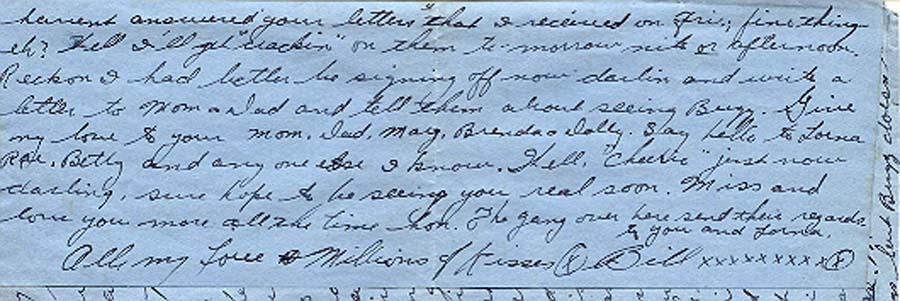 havent answered your letters "that I received on Fri.; fine thing
eh? Well I'll get "crackin" on them to-morrow nite or afternoon.
Reckon I had better be signing off now darlin and write a
letter to Mom & Dad and tell them about seeing Bugg. Give
my love to your Mom, Dad, Marg, Brenda & Wally. Say hello to Lorna
Rae, Betty and any one else I know. Well, "Cheerio" just now
darling, sure hope to be seeing you real soon. Miss and
love you more all the time hon. The gang over here send their regards
to you and Lorna.
All my Love & Millions of Kisses (X) Bill xxxxxxxxx(X)